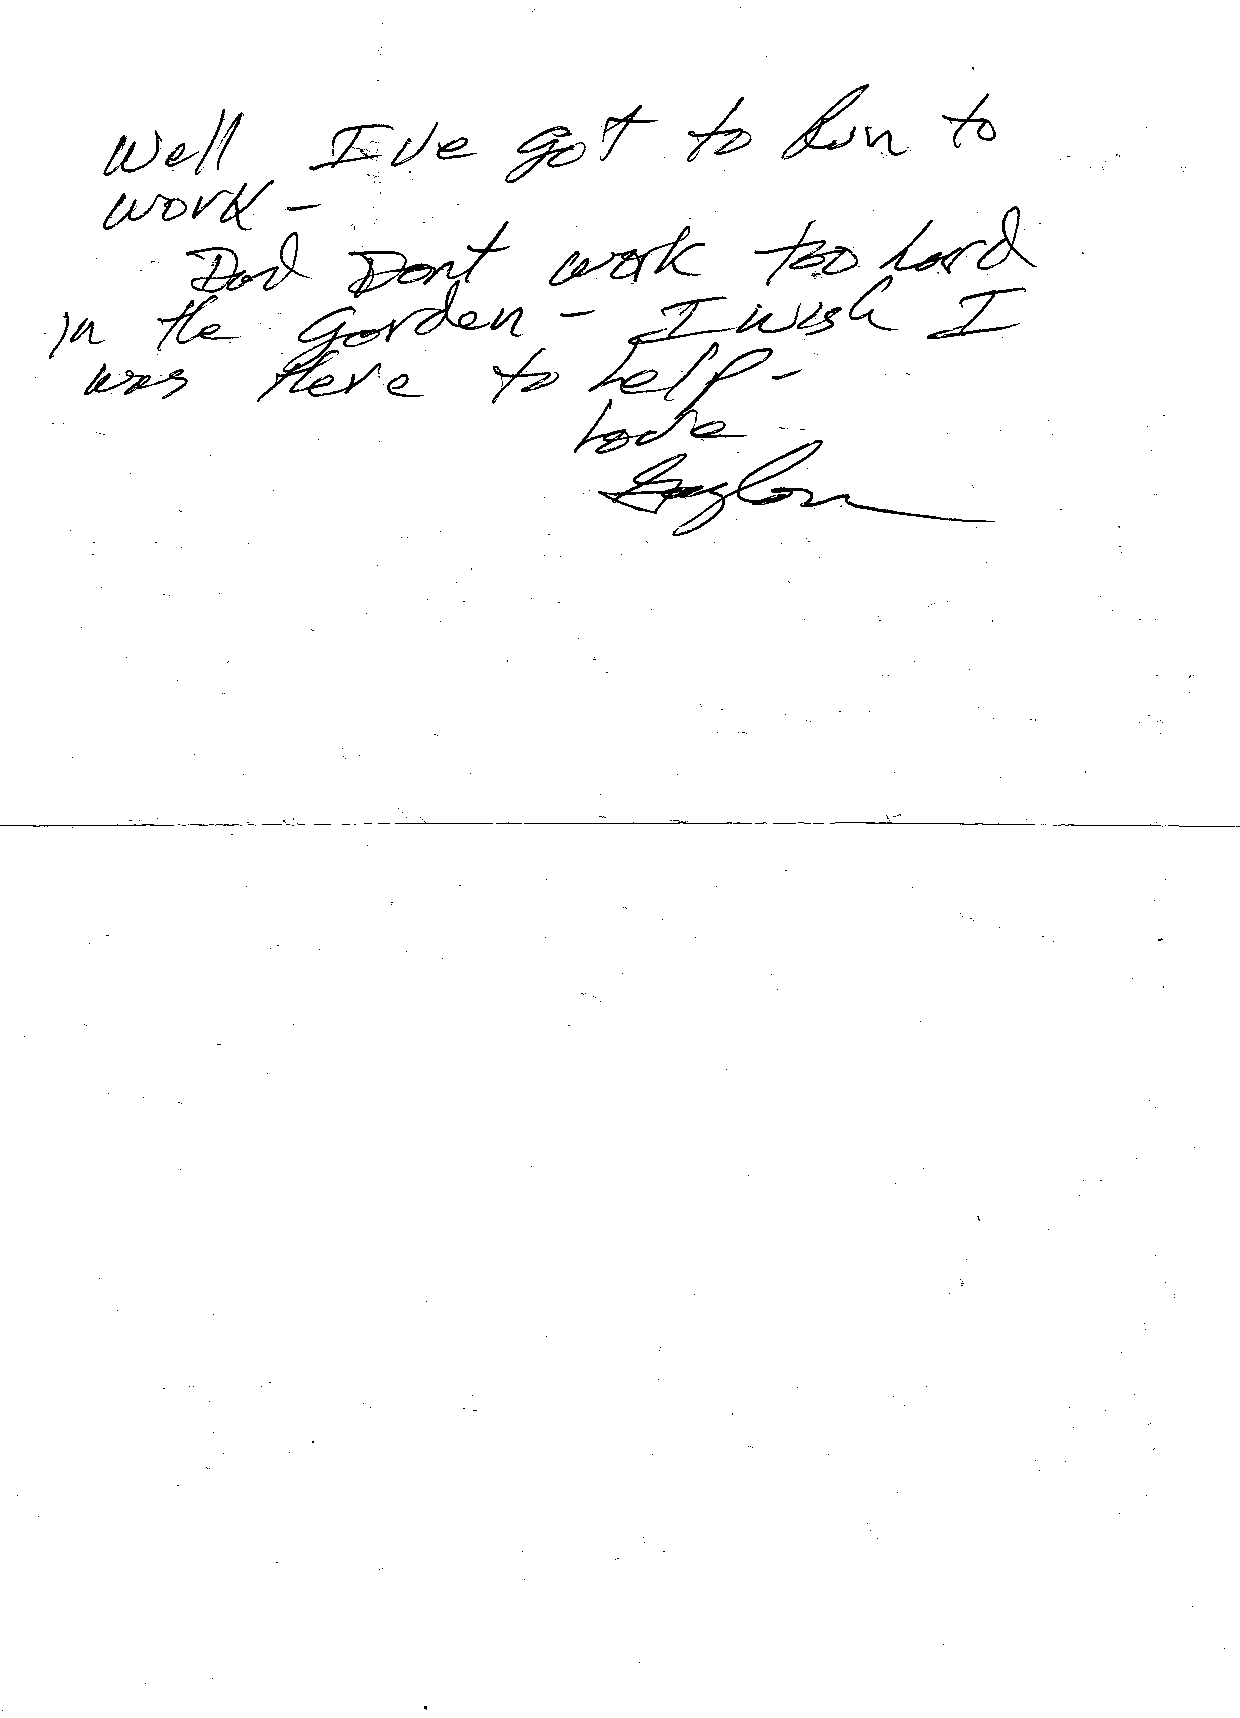 Well I've got to Run to
work -
Dad Dont work too hard
in the garden - I wish I
was there to help -
Love
Gaylon